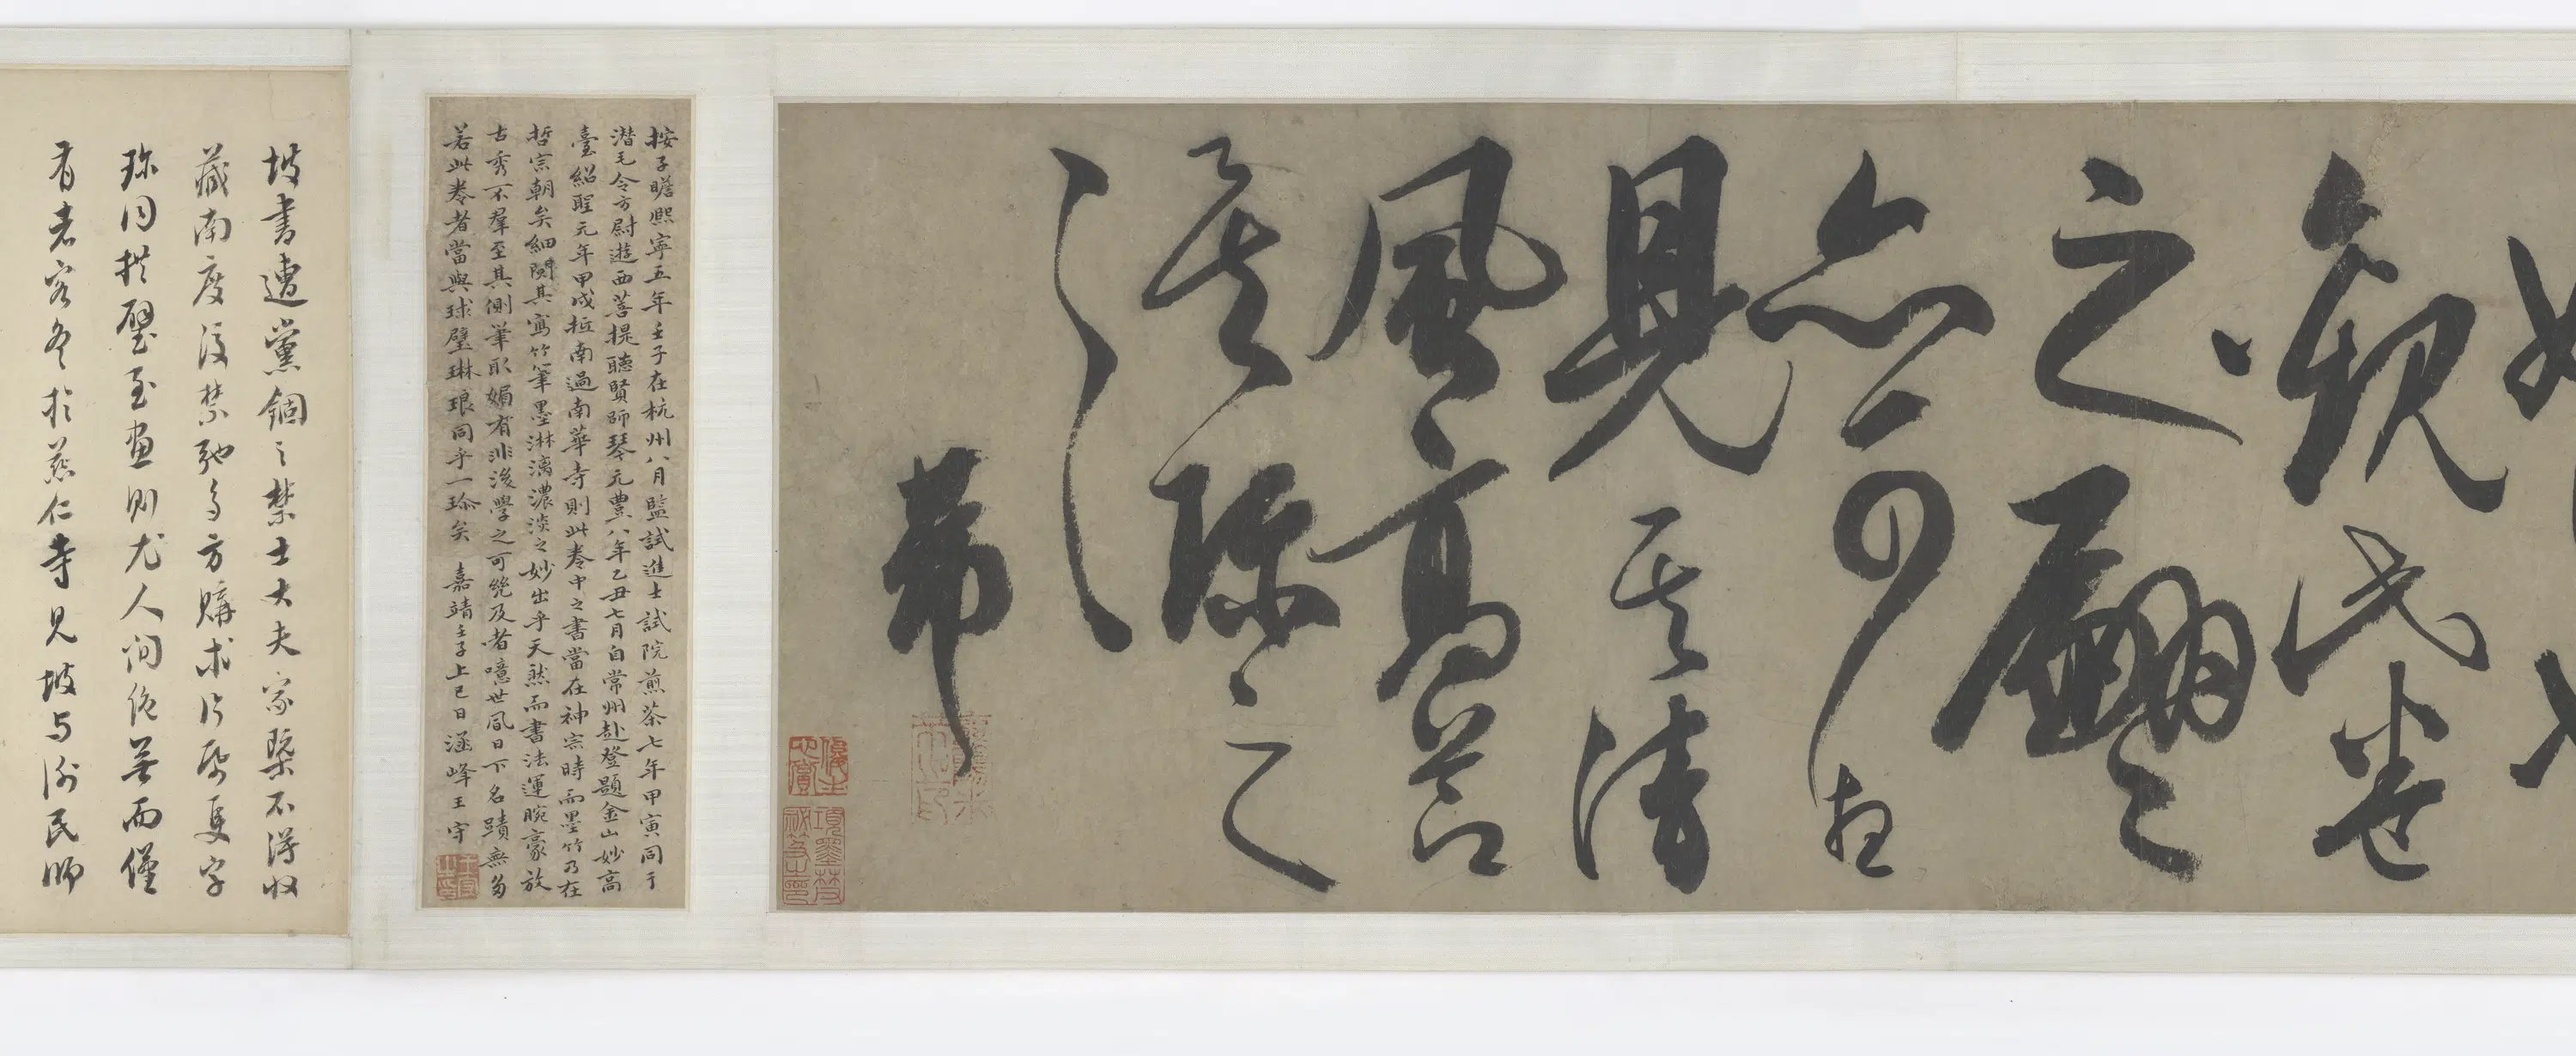 觀此卷
之
亦可想
見其清
風高節
珍之
芾
按子瞻熙寧五年壬子在杭州八月監試進士試院煎茶七年甲寅同于
潛毛令方尉遊西菩提聽賢師琴元豊八年乙丑七月自常州赴登題金山妙高
臺紹聖元年甲戌拉南過南華寺則此卷中之書當在神宗時而墨竹乃在
哲宗朝矣細閱其寫竹筆墨淋漓濃淡之妙出乎天然而書法運腕豪放
古秀不羣至其側筆取媚有非後學之可能及者噫世風日下名蹟無多
若此卷者當與球璧琳琅同乎一珍矣 嘉靖壬子上巳日涵峰王守
坡書遭黨錮之禁士大夫家槩不得收
藏南度後禁弛多方購求片帋隻字
珍同拱璧至畫則尤人间絕無而僅
有者客冬於慈仁寺見坡与謝民師